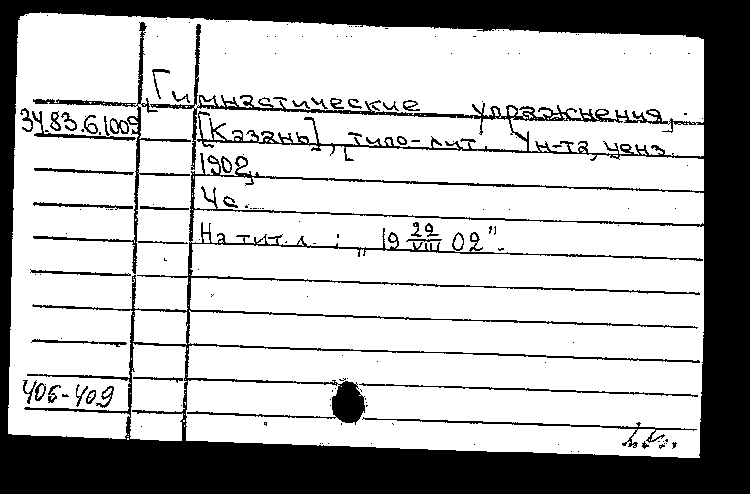 Гимнастические упражнения.
34.83.6.1009
[Казань], [типо-лит. Ун-та, ценз.
1902].
4с.
На тит. л. : „19 29/VIII 02”.
406-409